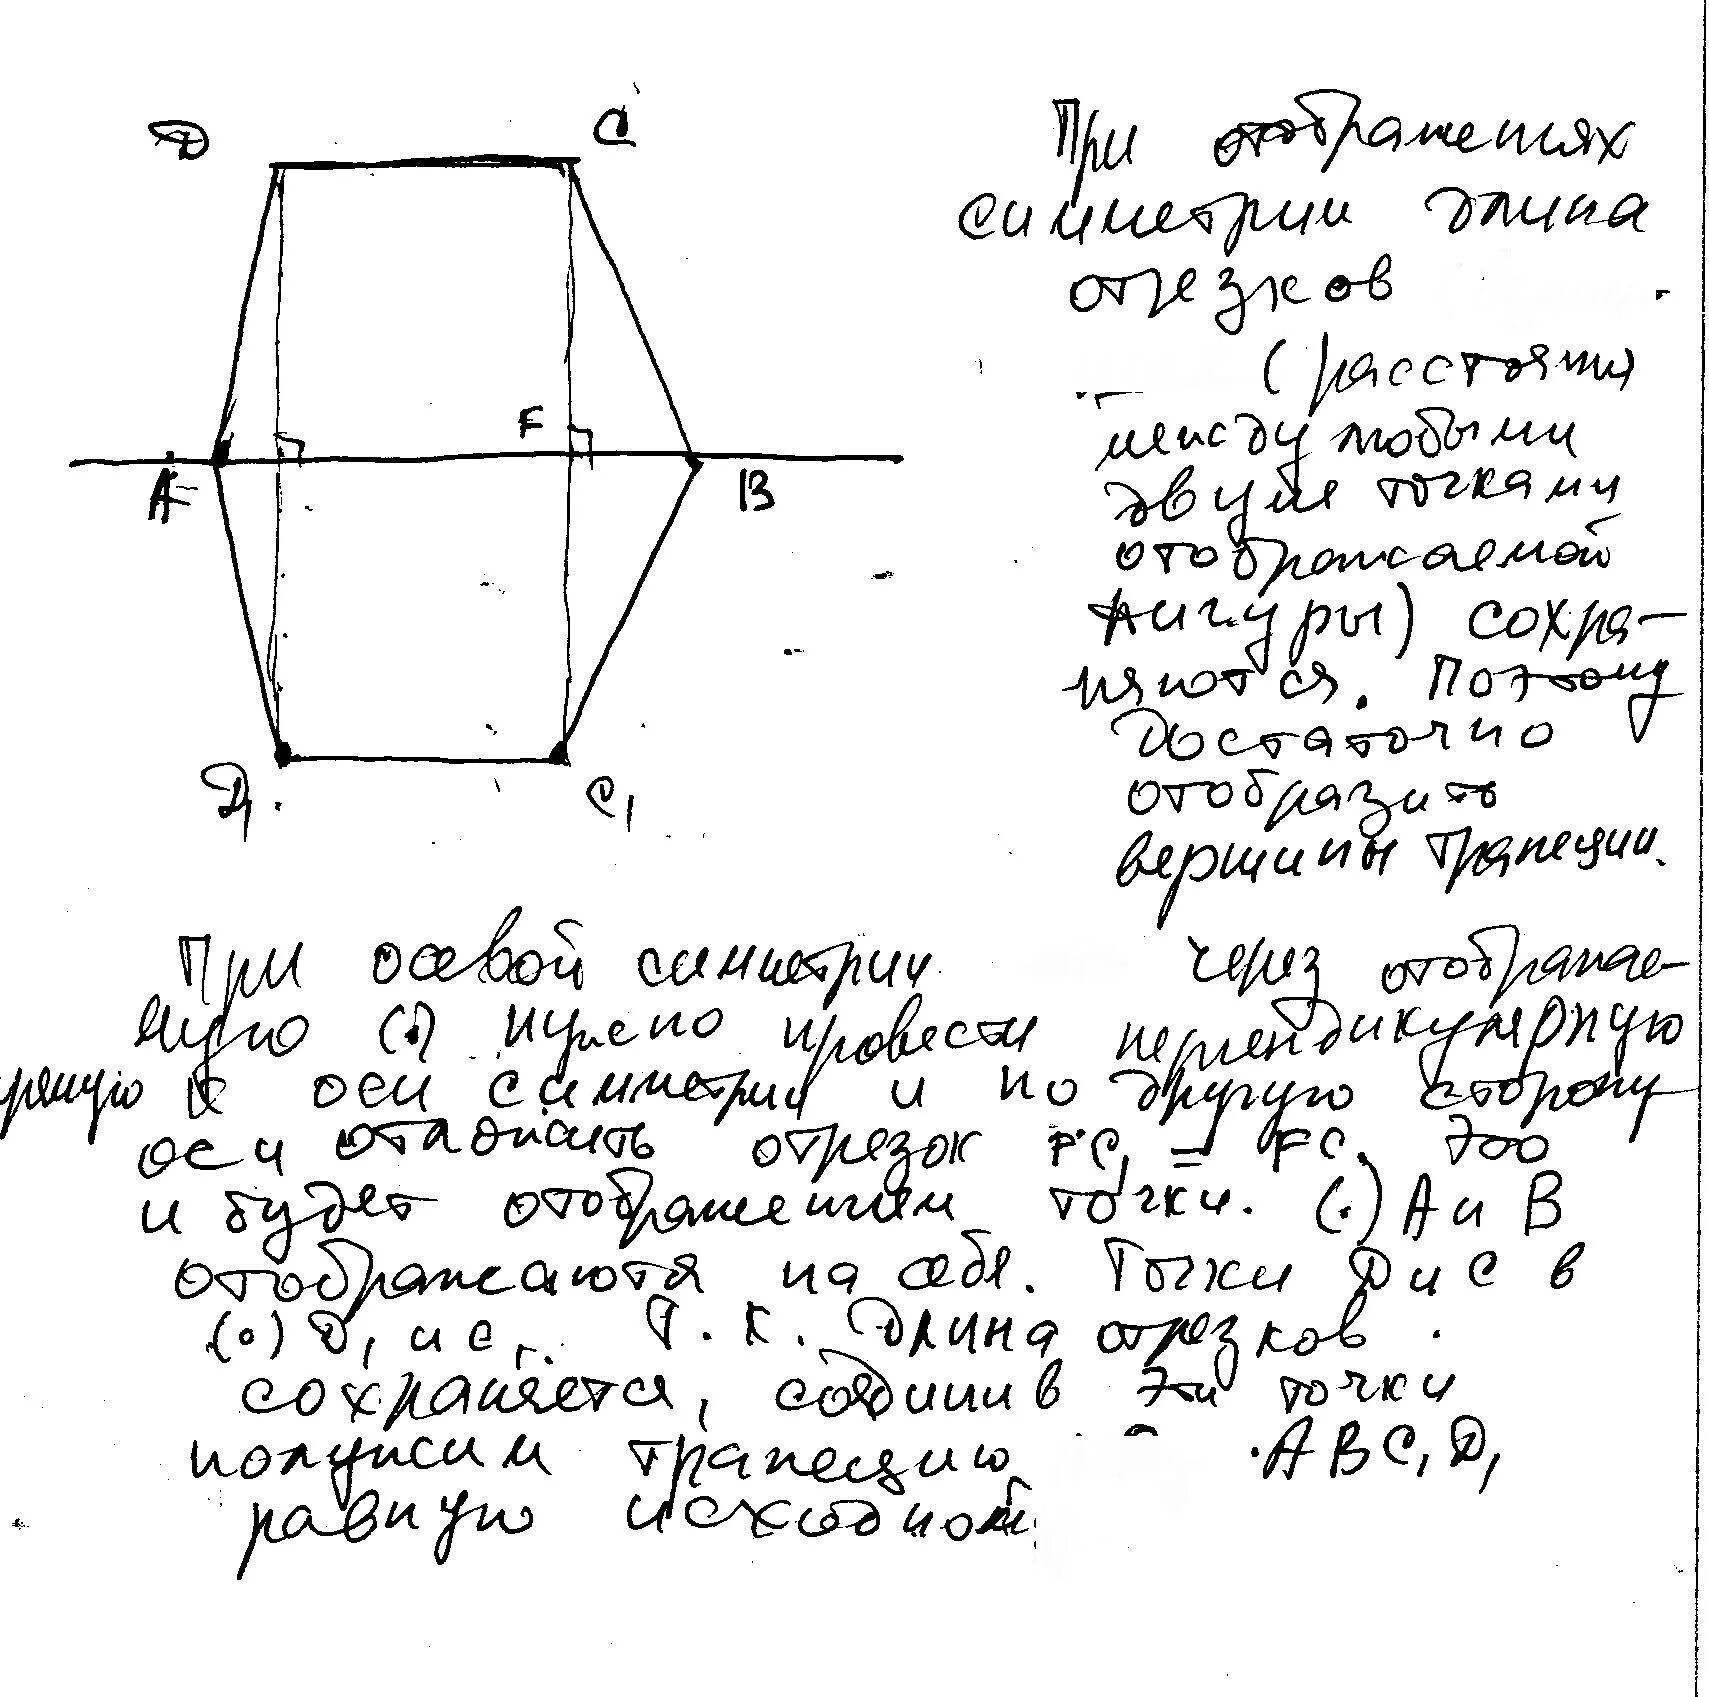 D C
F
A B
D₁. C₁
При отображениях
симметрии длина
отрезков
(расстояния
между любыми
двумя точками
отображаемой
фигуры) сохра-
няются. Поэтому
достаточно
отобразить
вершины трапеции.
При осевой симметрии через отображае-
мую (·) нужно провести перпендикулярную
прямую к оси симметрии и по другую сторону
оси отложить отрезок FC₁ = FC. Это
и будет отображением точки. (·) A и B
отображаются на себя. Точки D и C в
(·) D₁ и C₁. Т.к. Длина отрезков
сохраняется, соединив эти точки
получим трапецию ABC₁D₁
равную исходной